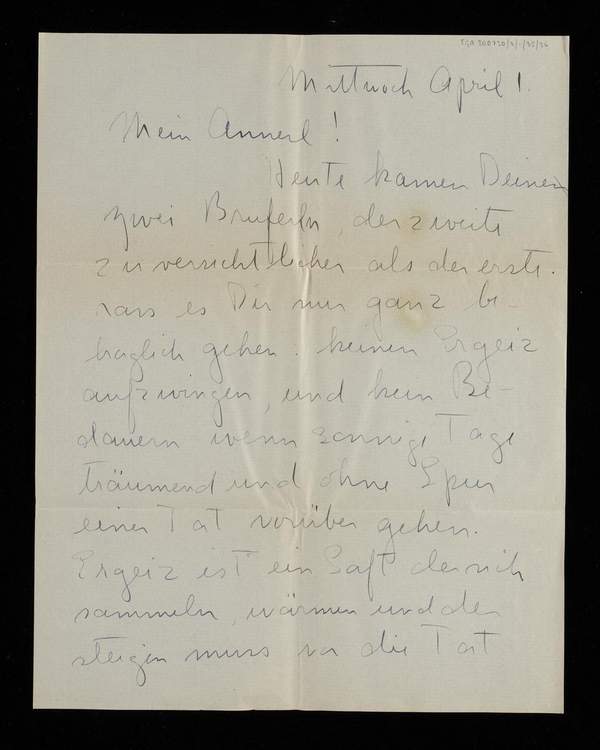 Mittwoch April 1.
Mein Annerl!
Heute kamen Deine
zwei Brieferln, der zweite
zuversichtlicher als der erste.
lass es Dir nur ganz be-
haglich gehen. keinen Ergeiz
aufzwingen, und kein Be-
dauern wenn sonnige Tage
träumend und ohne Spur
einer Tat vorüber gehen.
Ergeiz ist ein Saft der sich
sammeln, wärmen und der
steigen muss vor die Tat